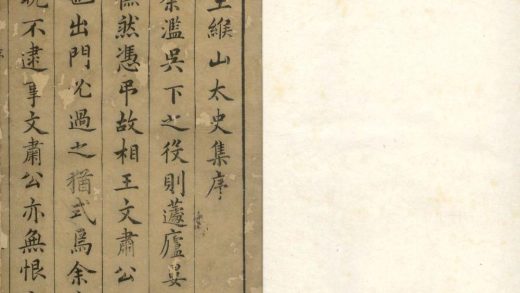 王緱山太史集序
余濫吳下之役則蘧廬晏
憮然憑弔故相王文肅公
出門必過之猶式爲余
不逮事文肅公亦無恨